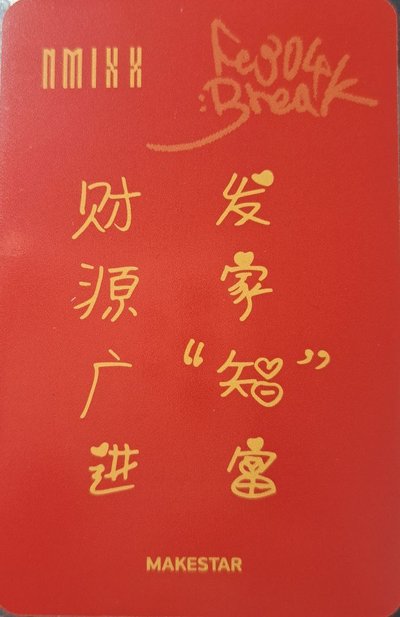 NMIXX
Fe3O4
:Break
发家“智”富
财源广进
MAKESTAR